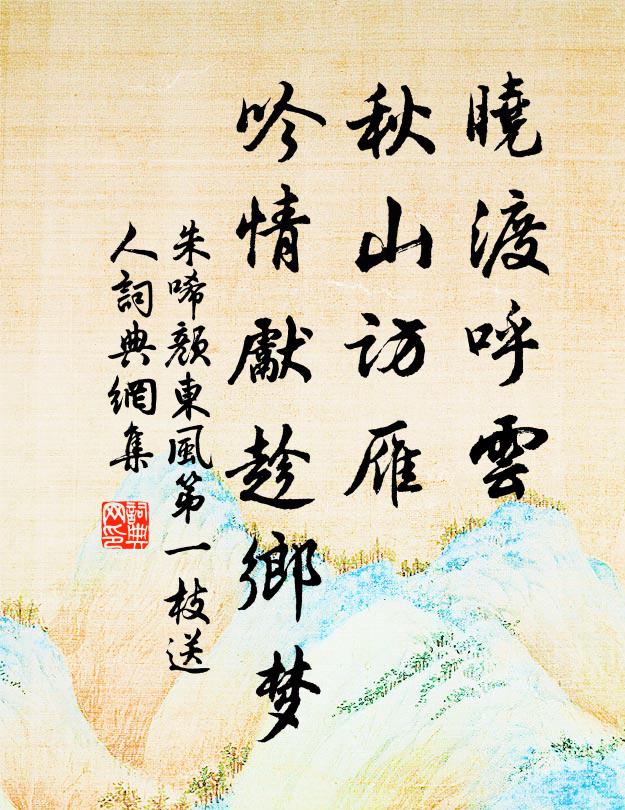 曉渡呼雲
秋山訪雁
吟情獻趁鄉梦
朱唏顔東風第一枝送
人詞典網集
詞典
网印